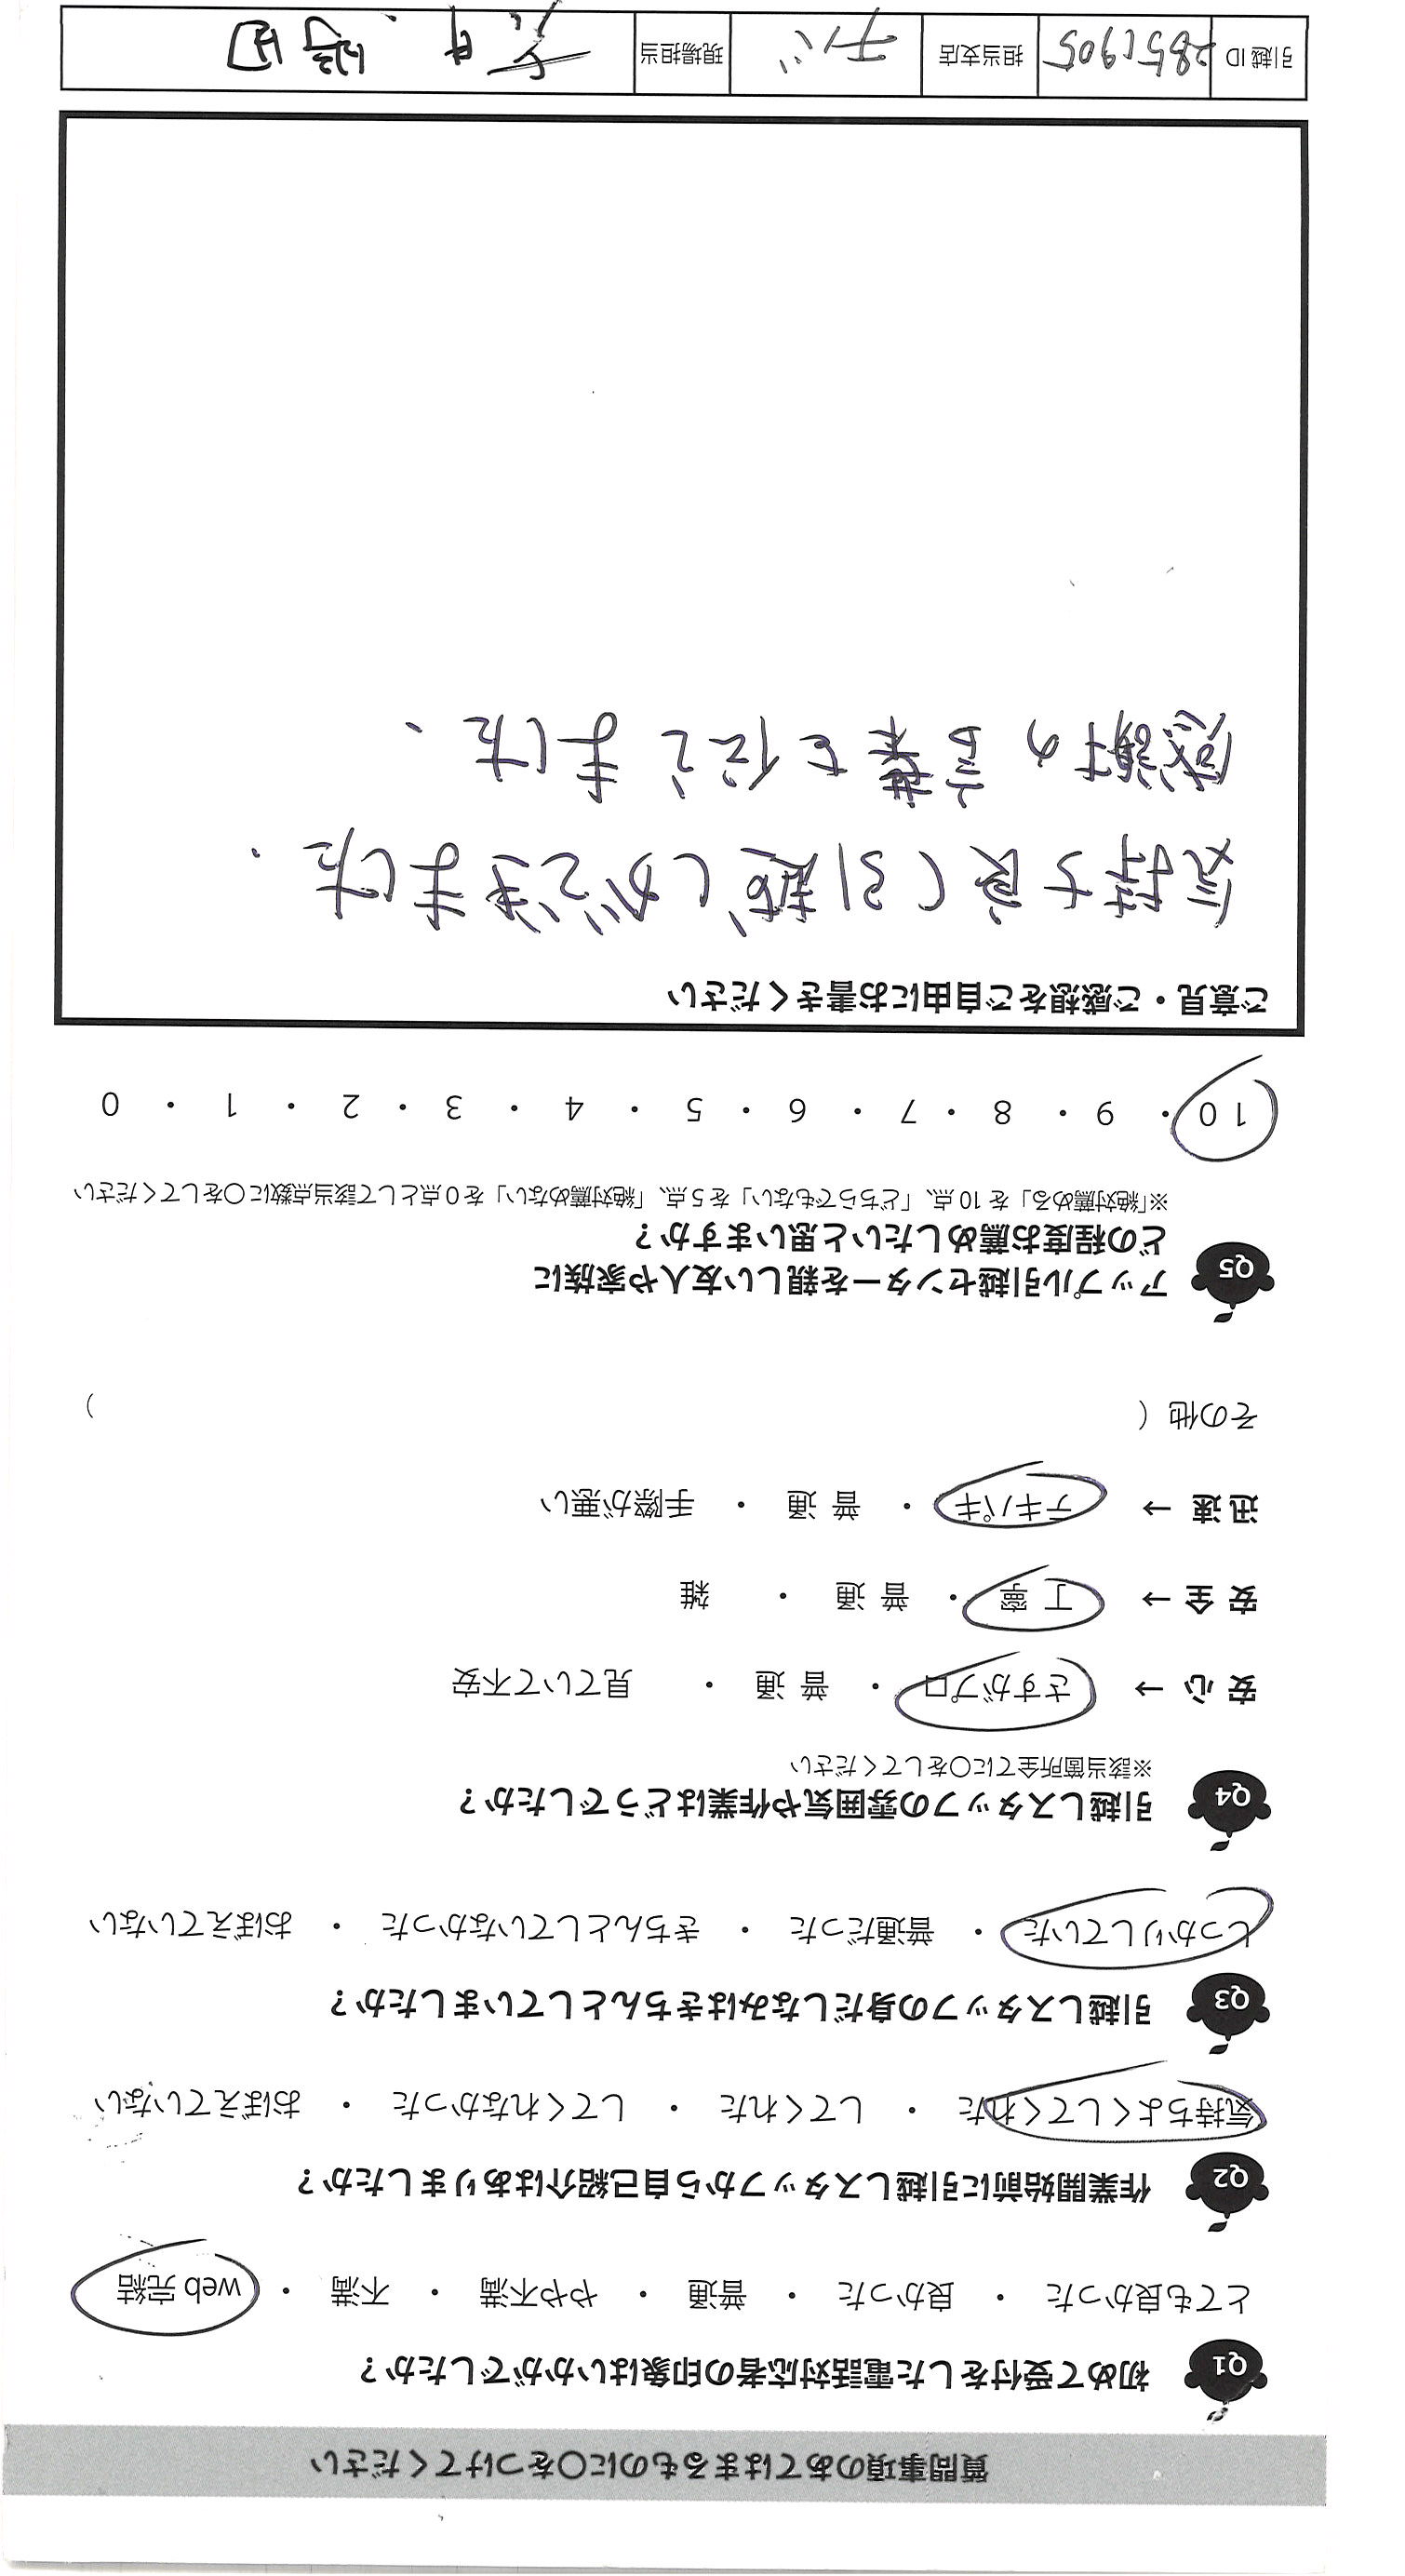 質問事項のあてはまるものに○をつけてください
Q1 初めて受付をした電話対応者の印象はいかがでしたか？
とても良かった ・ 良かった ・ 普通 ・ やや不満 ・ 不満 ・ web 完結
Q2 作業開始前に引越しスタッフから自己紹介はありましたか？
気持ちよくしてくれた ・ してくれた ・ してくれなかった ・ おぼえていない
Q3 引越しスタッフの身だしなみはきちんとしていましたか？
しっかりしていた ・ 普通だった ・ きちんとしていなかった ・ おぼえていない
Q4 引越しスタッフの雰囲気や作業はどうでしたか？
※該当箇所全てに○をしてください
安 心 → さすがプロ ・ 普 通 ・ 見ていて不安
安 全 → 丁 寧 ・ 普 通 ・ 雑
迅 速 → テキパキ ・ 普 通 ・ 手際が悪い
その他（ ）
Q5 アップル引越センターを親しい友人や家族に
どの程度お薦めしたいと思いますか？
※「絶対薦める」を 10 点、「どちらでもない」を 5 点、「絶対薦めない」を 0 点として該当点数に○をしてください
10 ・ 9 ・ 8 ・ 7 ・ 6 ・ 5 ・ 4 ・ 3 ・ 2 ・ 1 ・ 0
ご意見・ご感想をご自由にお書きください
気持ち良く引越しができました．
感謝の言葉を伝えました．
引越 ID 2851905 担当支店 チバ 現場担当